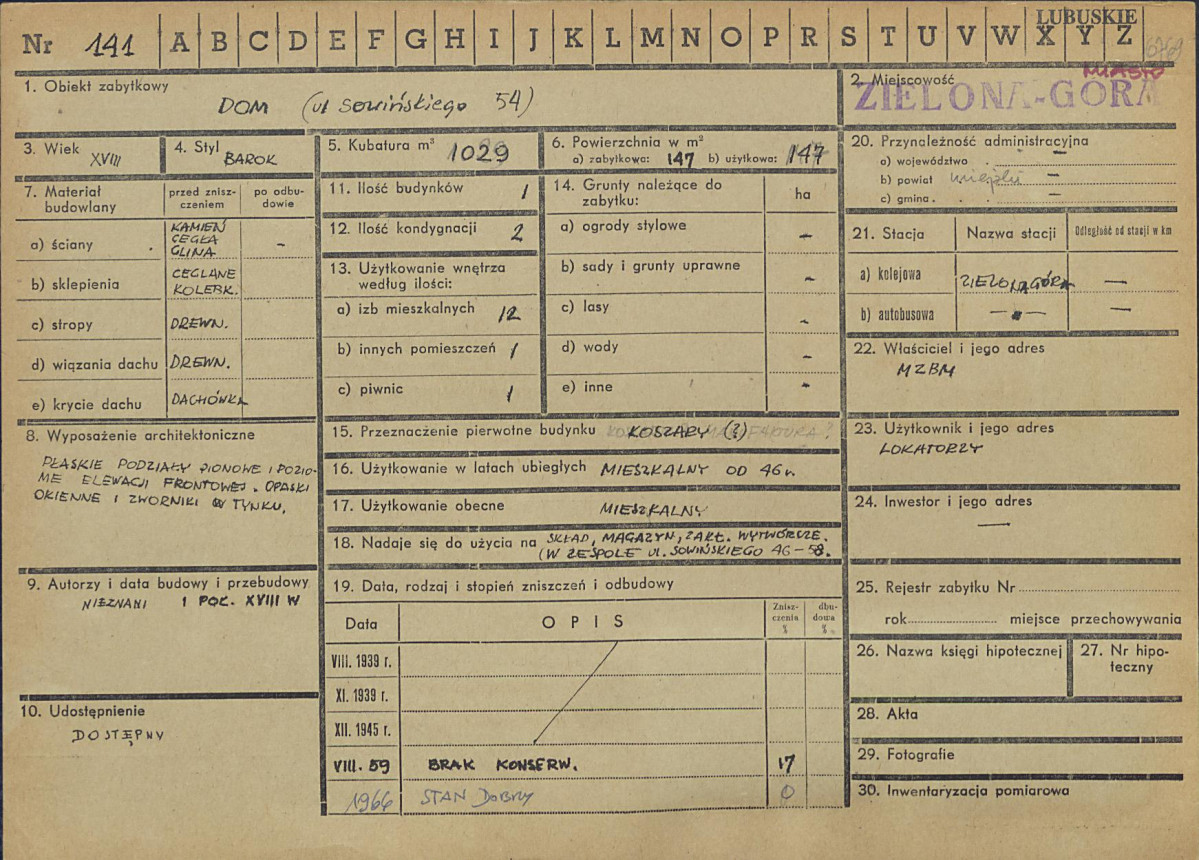 LUBUSKIE
Nr 141 A B C D E F G H I J K L M N O P R S T U V W X Y Z
1. Obiekt zabytkowy
DOM (ul Sowińskiego 54)
2. Miejscowość
MIASTO
ZIELONA-GÓRA
3. Wiek XVIII
4. Styl BAROK
5. Kubatura m³ 1029
6. Powierzchnia w m²
a) zabytkowa: 147 b) użytkowa: 147
7. Materiał budowlany
przed znisz-
czeniem
po odbu-
dowie
a) ściany
KAMIEŃ
CEGŁA
GLINA
-
b) sklepienia
CEGLANE
KOLEBK.
c) stropy DREWN.
d) wiązania dachu DREWN.
e) krycie dachu DACHÓWKA
8. Wyposażenie architektoniczne
PŁASKIE PODZIAŁY PIONOWE I POZIO-
ME ELEWACJI FRONTOWEJ. OPASKI
OKIENNE I ZWORNIKI W TYNKU.
9. Autorzy i data budowy i przebudowy
NIEZNANI I POŁ. XVIII W
10. Udostępnienie
DOSTĘPNY
11. Ilość budynków 1
12. Ilość kondygnacji 2
13. Użytkowanie wnętrza
według ilości:
a) izb mieszkalnych 12
b) innych pomieszczeń 1
c) piwnic 1
14. Grunty należące do
zabytku:
ha
a) ogrody stylowe -
b) sady i grunty uprawne -
c) lasy -
d) wody -
e) inne -
15. Przeznaczenie pierwotne budynku KOSZARY (?)
16. Użytkowanie w latach ubiegłych MIESZKALNY OD 46 r.
17. Użytkowanie obecne MIESZKALNY
18. Nadaje się do użycia na SKŁAD, MAGAZYN, ZAKŁ. WYTWÓRCZE.
(W ZESPOLE UL. SOWIŃSKIEGO 46-58.
19. Data, rodzaj i stopień zniszczeń i odbudowy
Data
OPIS
Znisz-
czenia
%
dbu-
dowa
%
VIII. 1939 r.
XI. 1939 r.
XII. 1945 r.
VIII. 59 BRAK KONSERW. 17
1966 STAN DOBRY 0
20. Przynależność administracyjna
a) województwo -
b) powiat miejski -
c) gmina -
21. Stacja
Nazwa stacji
Odległość od stacji w km
a) kolejowa ZIELONA GÓRA -
b) autobusowa - " - -
22. Właściciel i jego adres
MZBM
23. Użytkownik i jego adres
LOKATORZY
24. Inwestor i jego adres
-
25. Rejestr zabytku Nr
rok miejsce przechowywania
26. Nazwa księgi hipotecznej
27. Nr hipo-
teczny
28. Akta
29. Fotografie
30. Inwentaryzacja pomiarowa